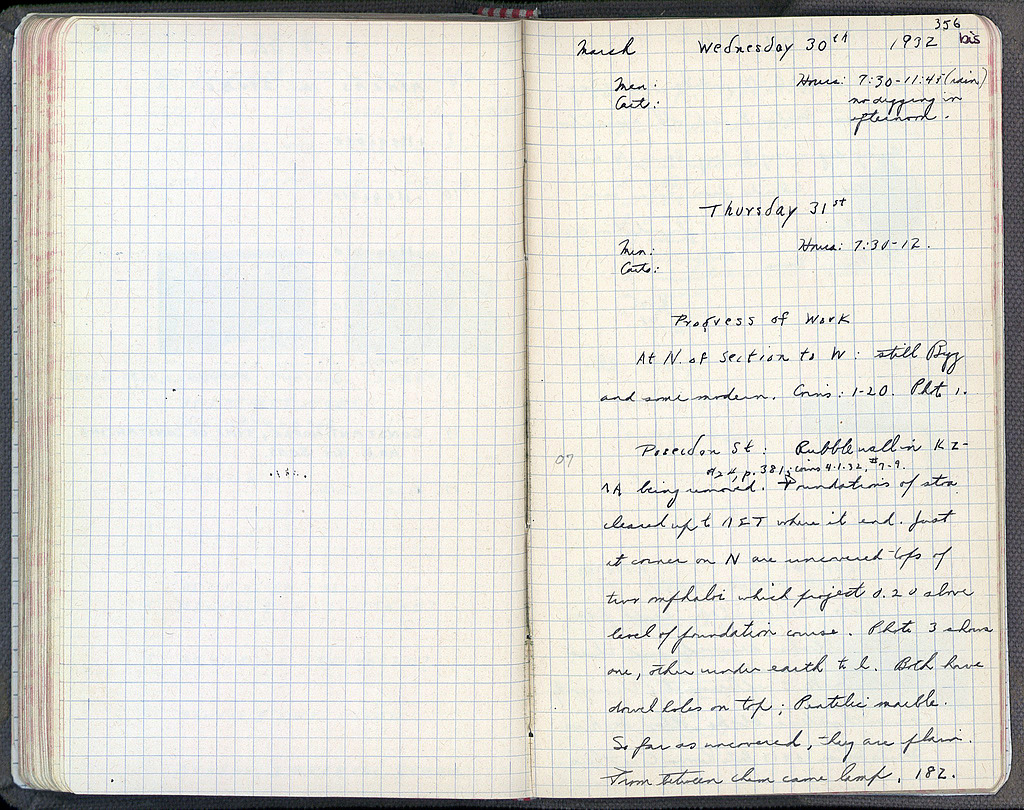 356
March Wednesday 30th 1932 bis
Men: Hours: 7:30-11:45 (rain)
Cart: no digging in
afternoon.
Thursday 31st
Men: Hours: 7:30-12.
Carts:
Progress of Work
At N. of Section to W: still Byz
and some modern. Coins: 1-20. Phot 1.
07
Poseidon St: Rubble wall in KZ-
p. 381; coins 4-1-32, #7-9.
ΛΑ being removed. Foundations of stoa
cleared up to ΛΣΤ where it end. Just
at corner on N are uncovered tops of
two omphaloi which project 0.20 above
level of foundation course. Photo 3 shows
one, other under earth to l. Both have
dowel holes on top; Pentelic marble.
So far as uncovered, they are plain.
From between them came lamp, 182.